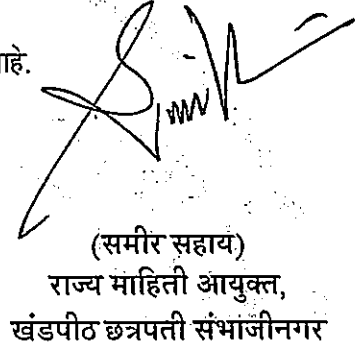 आहे.
(समीर सहाय)
राज्य माहिती आयुक्त,
खंडपीठ छत्रपती संभाजीनगर